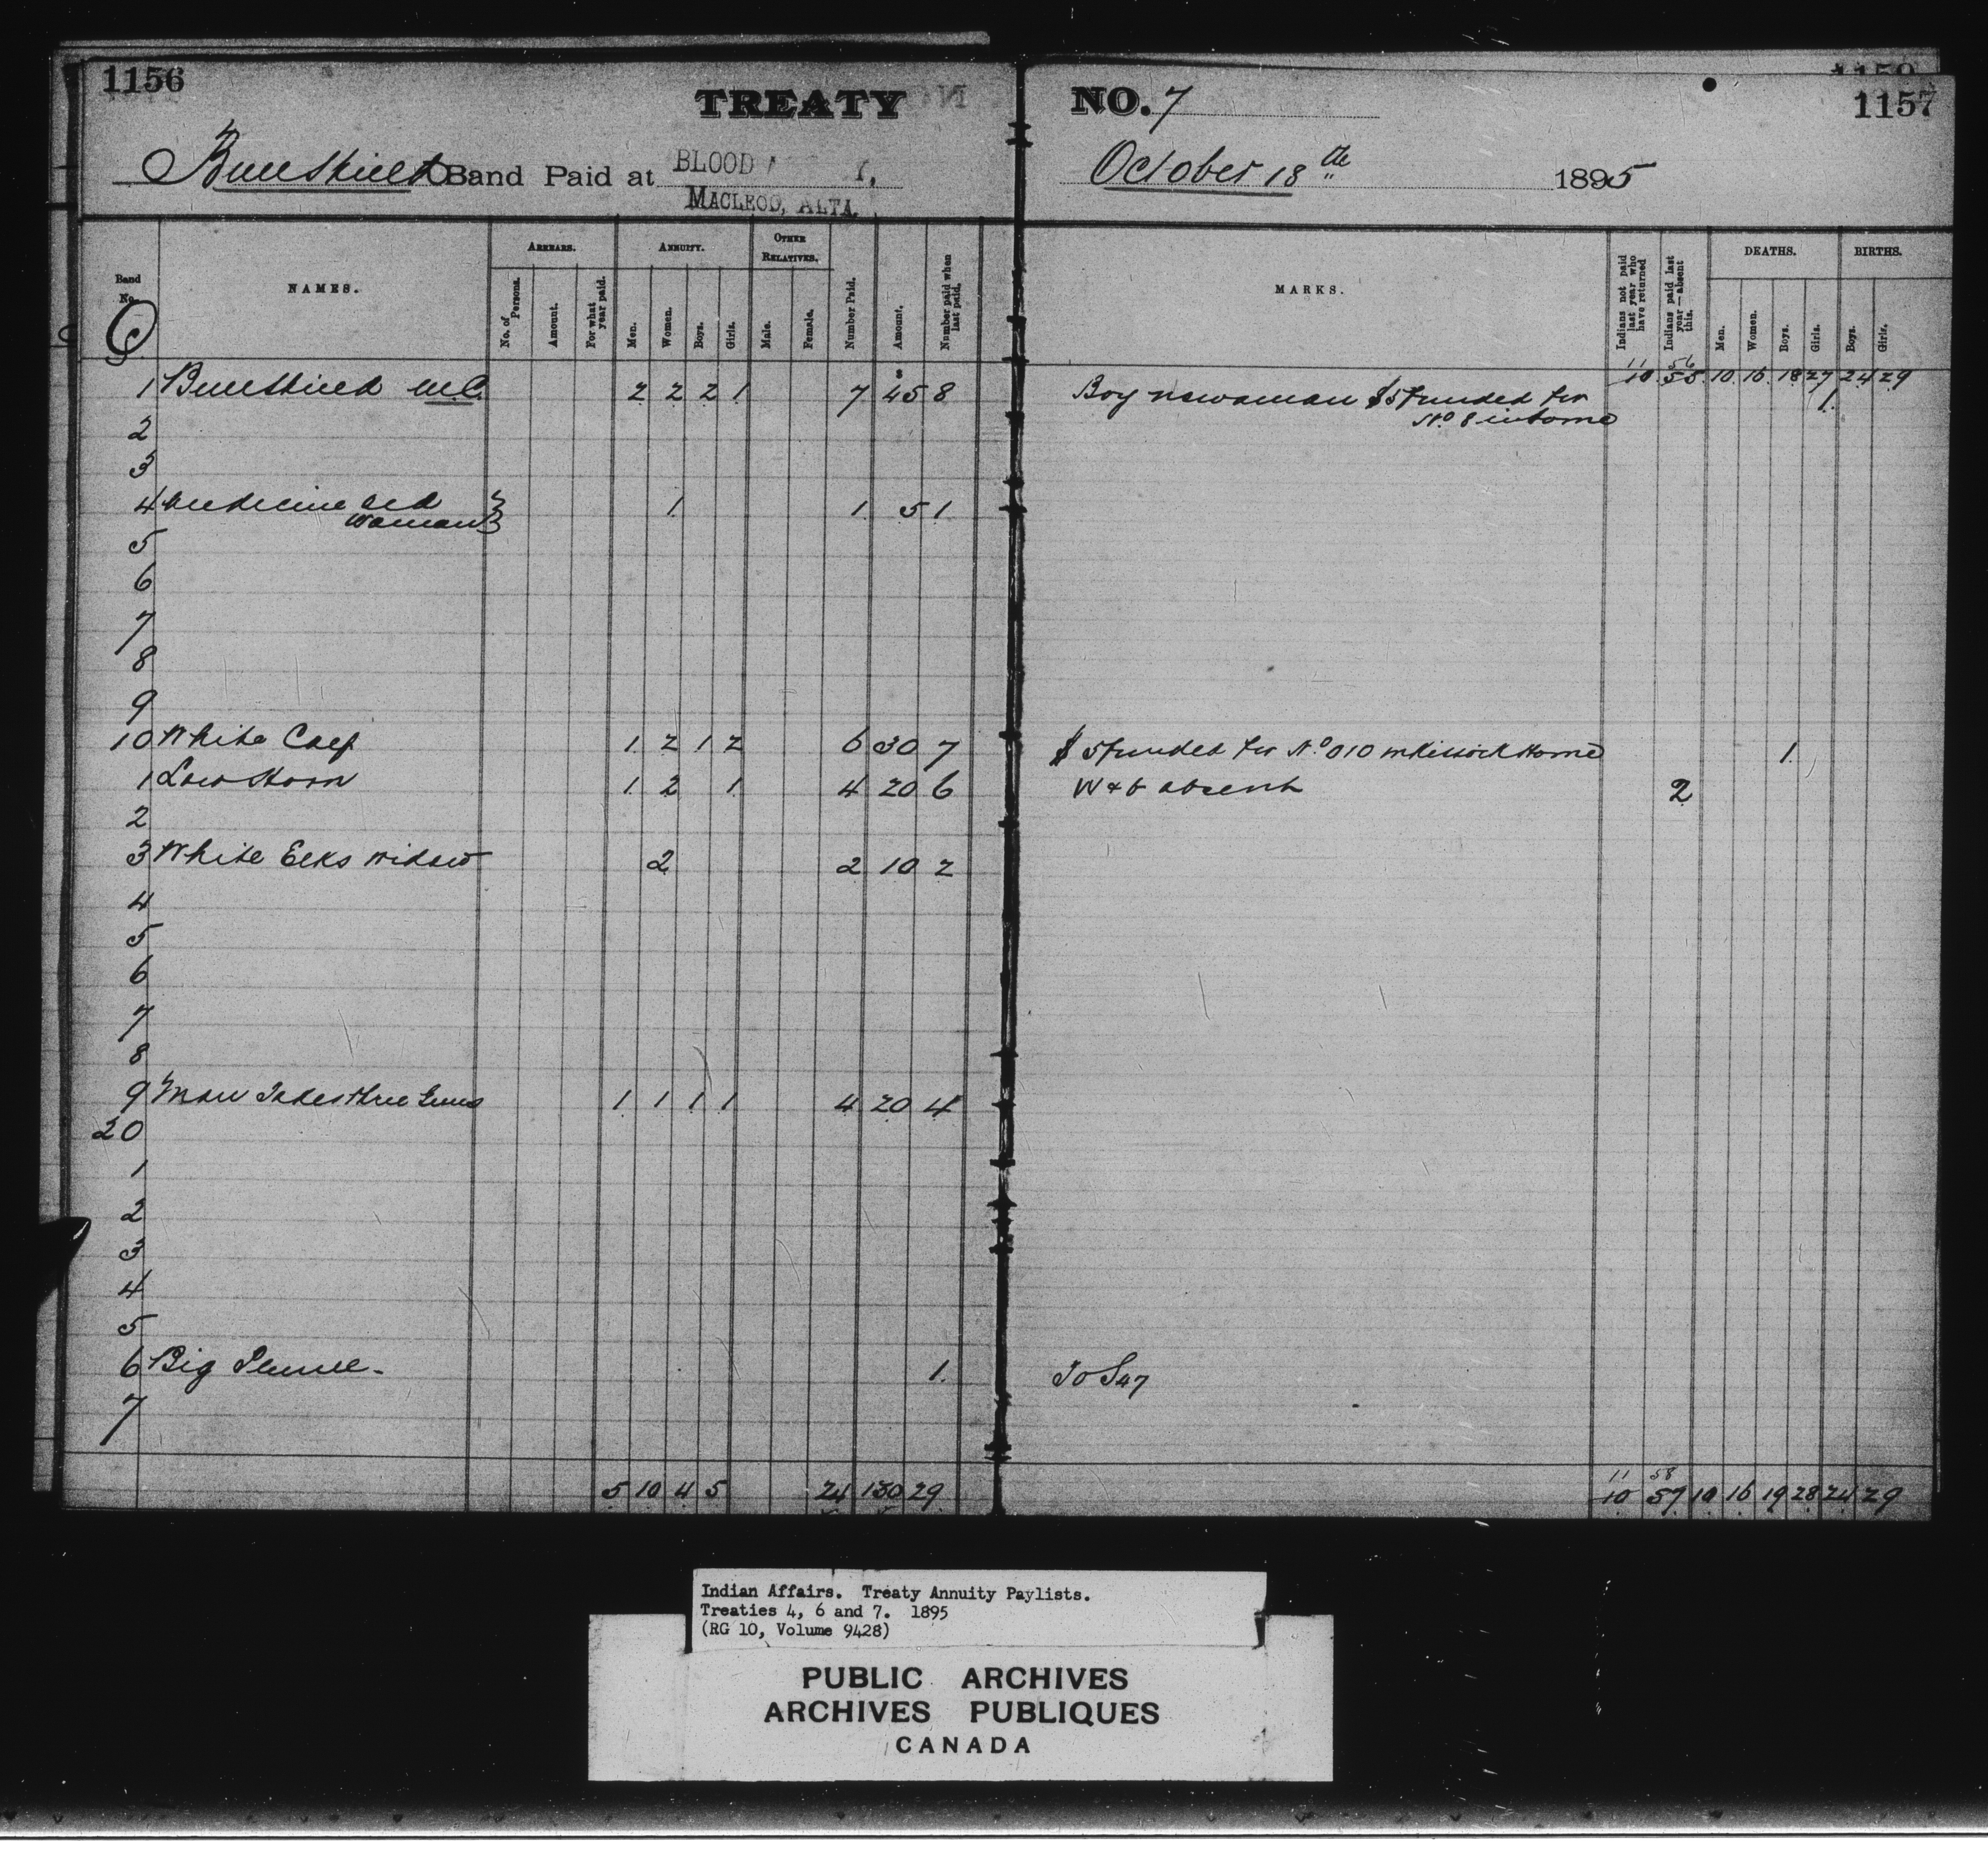 1156
TREATY
Bull Shield Band Paid at BLOOD
MACLEOD, ALTA.
Band No. NAMES. ARREARS. ANNUITY. OTHER RELATIVES.
No. of Persons. Amount. For what year paid. Men. Women. Boys. Girls. Male. Female. Number Paid. Amount. Number paid when last paid.
1 Bull Shield M.C. 2 2 2 1 7 45 8
2
3
4 Medicine Old Woman 1 1 5 1
5
6
7
8
9
10 White Calf 1 2 1 2 6 30 7
1 Low Horn 1 2 1 4 20 6
2
3 White Elks Widow 2 2 10 2
4
5
6
7
8
9 Man Takes Three Guns 1 1 1 1 4 20 4
20
1
2
3
4
5
6 Big Plume - 1
7
5 10 4 5 24 130 29
1159
1157
NO. 7
October 18th 1895
MARKS. Indians not paid last year who have returned Indians paid last year — absent this. DEATHS. BIRTHS.
Men. Women. Boys. Girls. Boys. Girls.
11 56
10 55 10 16 18 27 24 29
Boy now a man $5 funded for 1
No 8 in home
$5 funded for No 010 McKissock Home 1
W & b absent 2
To S47
11 58
10 57 10 16 19 28 24 29
Indian Affairs. Treaty Annuity Paylists.
Treaties 4, 6 and 7. 1895
(RG 10, Volume 9428)
PUBLIC ARCHIVES
ARCHIVES PUBLIQUES
CANADA